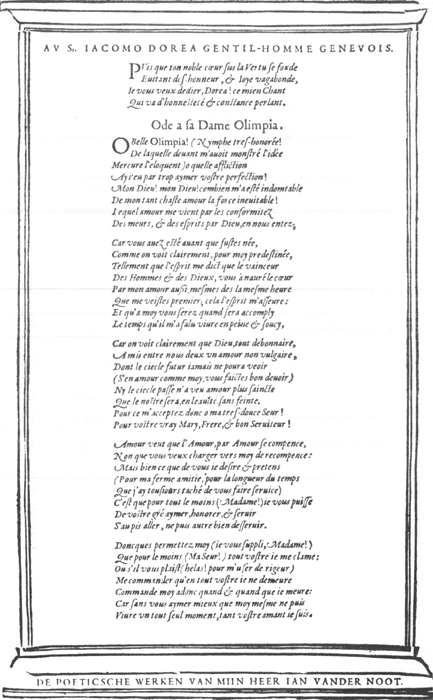 AV Sr. IACOMO DOREA GENTIL-HOMME GENEVOIS.
PVis que ton noble cœur sus la Vertu se fonde
Euitant des-honneur, & Ioye vagabonde,
Ie vous veux dedier, Dorea! ce mien Chant
Qui va d'honnesteté & constance perlant.
Ode a sa Dame Olimpia.
OBelle Olimpia! (Nymphe tres-honorée!
De laquelle deuant m'auoit monstré l'idée
Mercure l'eloquent) o quelle affliction
Ay i'eu par trop aymer vostre perfection!
Mon Dieu! mon Dieu! combien m'a esté indomtable
De mon tant chaste amour la force ineuitable!
Lequel amour me vient par les conformitez
Des meurs, & des esprits par Dieu, en nous entez,
Car vous auez esté auant que fustes née,
Comme on voit clairement, pour moy predestinée,
Tellement que l'esprit me dict que le vainceur
Des Hommes & des Dieux, vous à nauré le cœur
Par mon amour aussi, mesmes des la mesme heure
Que me veistes premier, cela l'esprit m'asseure:
Et qu'a moy vous serez quand sera accomply
Le temps qu'il m'a falu viure en peine & soucy,
Car on voit clairement que Dieu, tout debonnaire,
A mis entre nous deux vn amour non vulgaire,
Dont le ciecle futur iamais ne pourà veoir
(S'en amour comme moy, vous faictes bon deuoir)
Ny le ciecle passé n'a veu amour plus saincte
Que le nostre sera, en leaulté, sans feinte.
Pour ce m'acceptez donc o ma tres-douce Seur!
Pour vostre vray Mary, Frere, & bon Seruiteur!
Amour veut que l'Amour, par Amour se compence,
Non que vous veux charger vers moy de recompence:
Mais bien ce que de vous ie desire & pretens
(Pour ma ferme amitie, pour la longueur du temps
Que j'ay tousiours taché de vous faire seruice)
C'est que pour tout le moins (Madame!) ie vous puisse
De vostre gré aymer, honorer, & seruir
S'au pis aller, ne puis autre bien desseruir.
Doncques permettez moy (ie vous suppli, Madame!)
Que pour le moins (Ma Seur!) tout vostre ie me clame:
Ou s'il vous plaist (helas! pour m'user de rigeur)
Me commander qu'en tout vostre ie ne demeure
Commande moy adonc quand & quand que ie meure:
Car sans vous aymer mieux que moy mesme ne puis
Viure vn tout seul moment, tant vostre amant ie suis.
DE POETICSCHE WERKEN VAN MIIN HEER IAN VANDER NOOT.